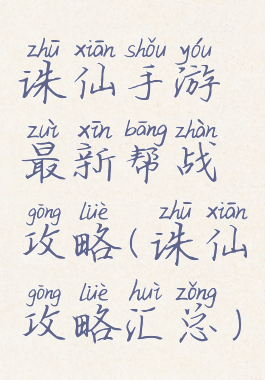 zhū xiān shǒu yóu
诛仙手游
zuì xīn bāng zhàn
最新帮战
gōng lüè zhū xiān
攻略(诛仙
gōng lüè huì zǒng
攻略汇总)